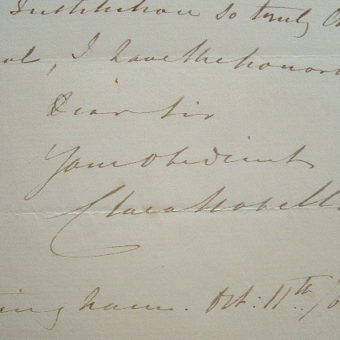 Institution so truly
I have the honor
Dear Sir
Your Obedient
Clara Novello
ingham. Oct: 11th,